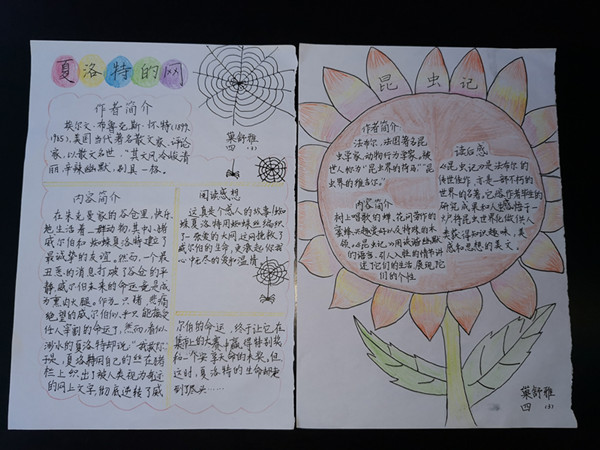 夏洛特的网
作者简介
埃尔文·布鲁克斯·怀特(1899-
1985),美国当代著名散文家、评论
家,以散文名世,"其文风冷峻清
丽,辛辣幽默,别具一格。
叶舒雅
四 (3)
内容简介
在朱克曼家的谷仓里,快乐
地生活着一群动物,其中小猪
威尔伯和蜘蛛夏洛特建立了
最诚挚的友谊。然而,一个最
丑恶的消息打破了谷仓的平
静:威尔伯未来的命运竟是成
为熏肉火腿。作为一只猪,悲痛
绝望的威尔伯似乎只能接受
任人宰割的命运了,然而,看似
渺小的夏洛特却说:"我救你。"
于是,夏洛特用自己的丝在猪
栏上织出了被人类视为奇迹
的网上文字,彻底逆转了威
阅读感想
这真是个感人的故事!蜘
蛛夏洛特用蜘蛛丝编织
了一张爱的大网,这网挽救了
威尔伯的生命,更激起你我
心中无尽的爱和温情。
尔伯的命运,终于让它在
集市上的大赛中赢得特别奖
和一个安享天命的未来,但,
这时,夏洛特的生命却走
到了尽头……
昆虫记
作者简介
法布尔,法国著名昆
虫学家,动物行为学家。被
世人称为"昆虫界的荷马""昆
虫界的维吉尔"。
内容简介
树上唱歌的蝉、花间劳作的
《昆虫记》用诙谐幽默
的语言,引人入胜的情节讲
述它们的生活,展现它
们的个性
读后感
《昆虫记》是法布尔的
传世佳作,亦是一部不朽的
世界名著。
大户特昆虫世界化做供人
类获得知识、趣味、美
感和思想的美文。
叶舒雅
四 (3)